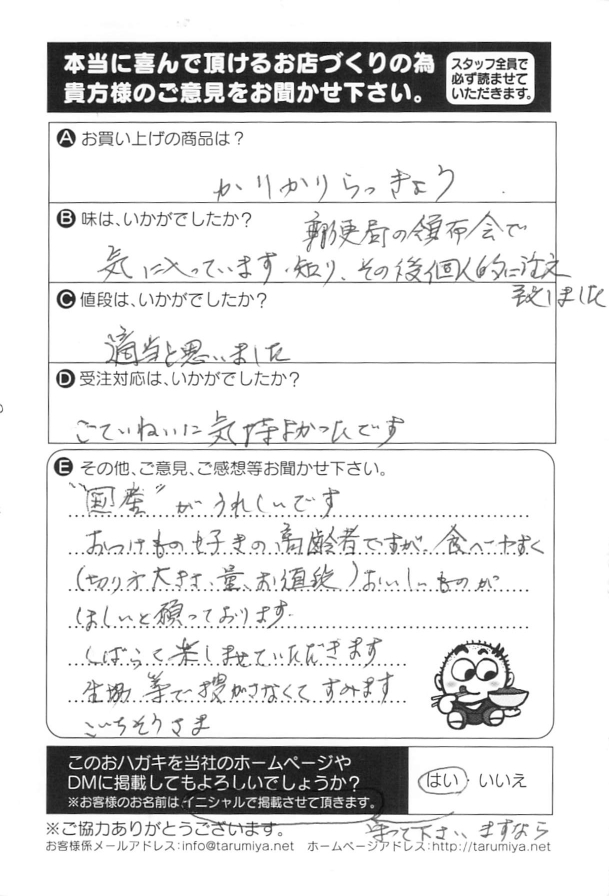 本当に喜んで頂けるお店づくりの為
貴方様のご意見をお聞かせ下さい。
スタッフ全員で
必ず読ませて
いただきます。
A お買い上げの商品は？
かりかりらっきょう
B 味は、いかがでしたか？
郵便局の領布会で
気に入っています。知り、その後個人的に注文
致しました
C 値段は、いかがでしたか？
適当と思いました
D 受注対応は、いかがでしたか？
ごていねいに気持よかったです
E その他、ご意見、ご感想等お聞かせ下さい。
"国産"がうれしいです
おつけもの好きの高齢者ですが、食べやすく
(切り方大きさ、量、お値段)おいしいものが
ほしいと願っております。
しばらく楽しませていただきます
生協等で捜がさなくてすみます
ごちそうさま
このおハガキを当社のホームページや
DMに掲載してもよろしいでしょうか？
※お客様のお名前は、イニシャルで掲載させて頂きます。
はい・いいえ
※ご協力ありがとうございます。
守って下さいますなら
お客様係メールアドレス：info@tarumiya.net ホームページアドレス：http://tarumiya.net